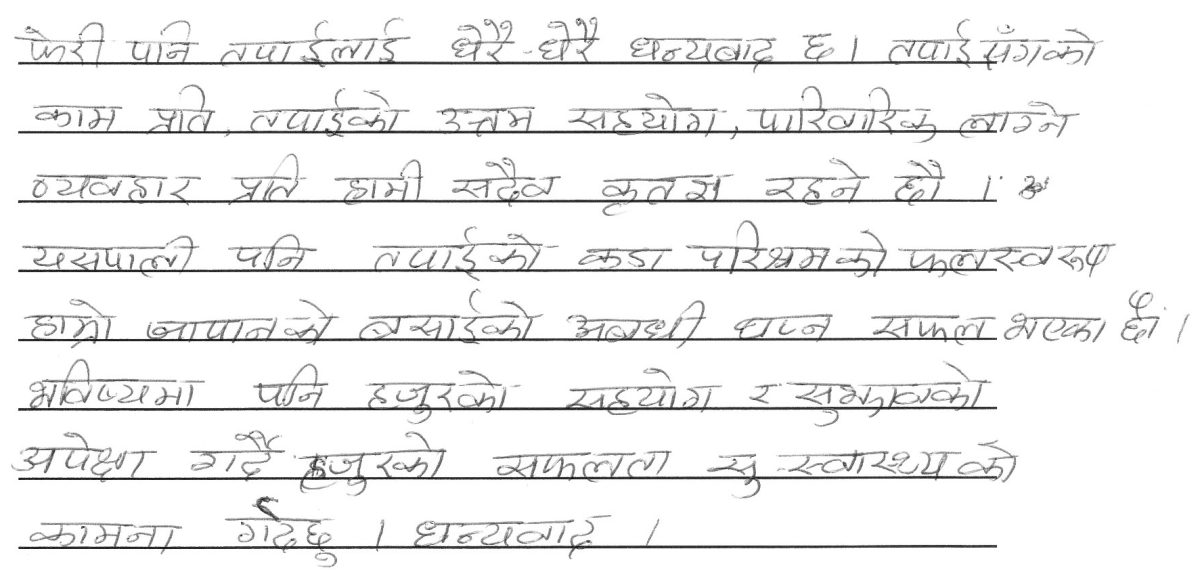 फेरी पनि तपाईलाई धेरै-धेरै धन्यबाद छ। तपाईसँगको
काम प्रति, तपाईको उत्तम सहयोग, पारिवारिक लाग्ने
व्यवहार प्रति हामी सदैव कृतज्ञ रहने छौ ।
यसपाली पनि तपाईको कडा परिश्रमको फलस्वरूप
हाम्रो जापानको बसाईको अबधी थप्न सफल भएका छौं।
भविष्यमा पनि हजुरको सहयोग र सुझावको
अपेक्षा गर्दै हजुरको सफलता सु-स्वास्थ्यको
कामना गर्दछु । धन्यवाद ।